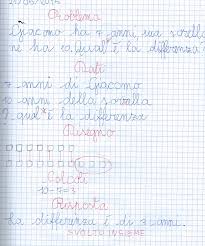 Problema
Giacomo ha 7 anni, sua sorella
ne ha 10. Qual è la differenza?
Dati
7 anni di Giacomo
10 anni della sorella
? qual è la differenza
Disegno
Calcoli
10-7=3
Risposta
La differenza è di 3 anni.
SVOLTO INSIEME